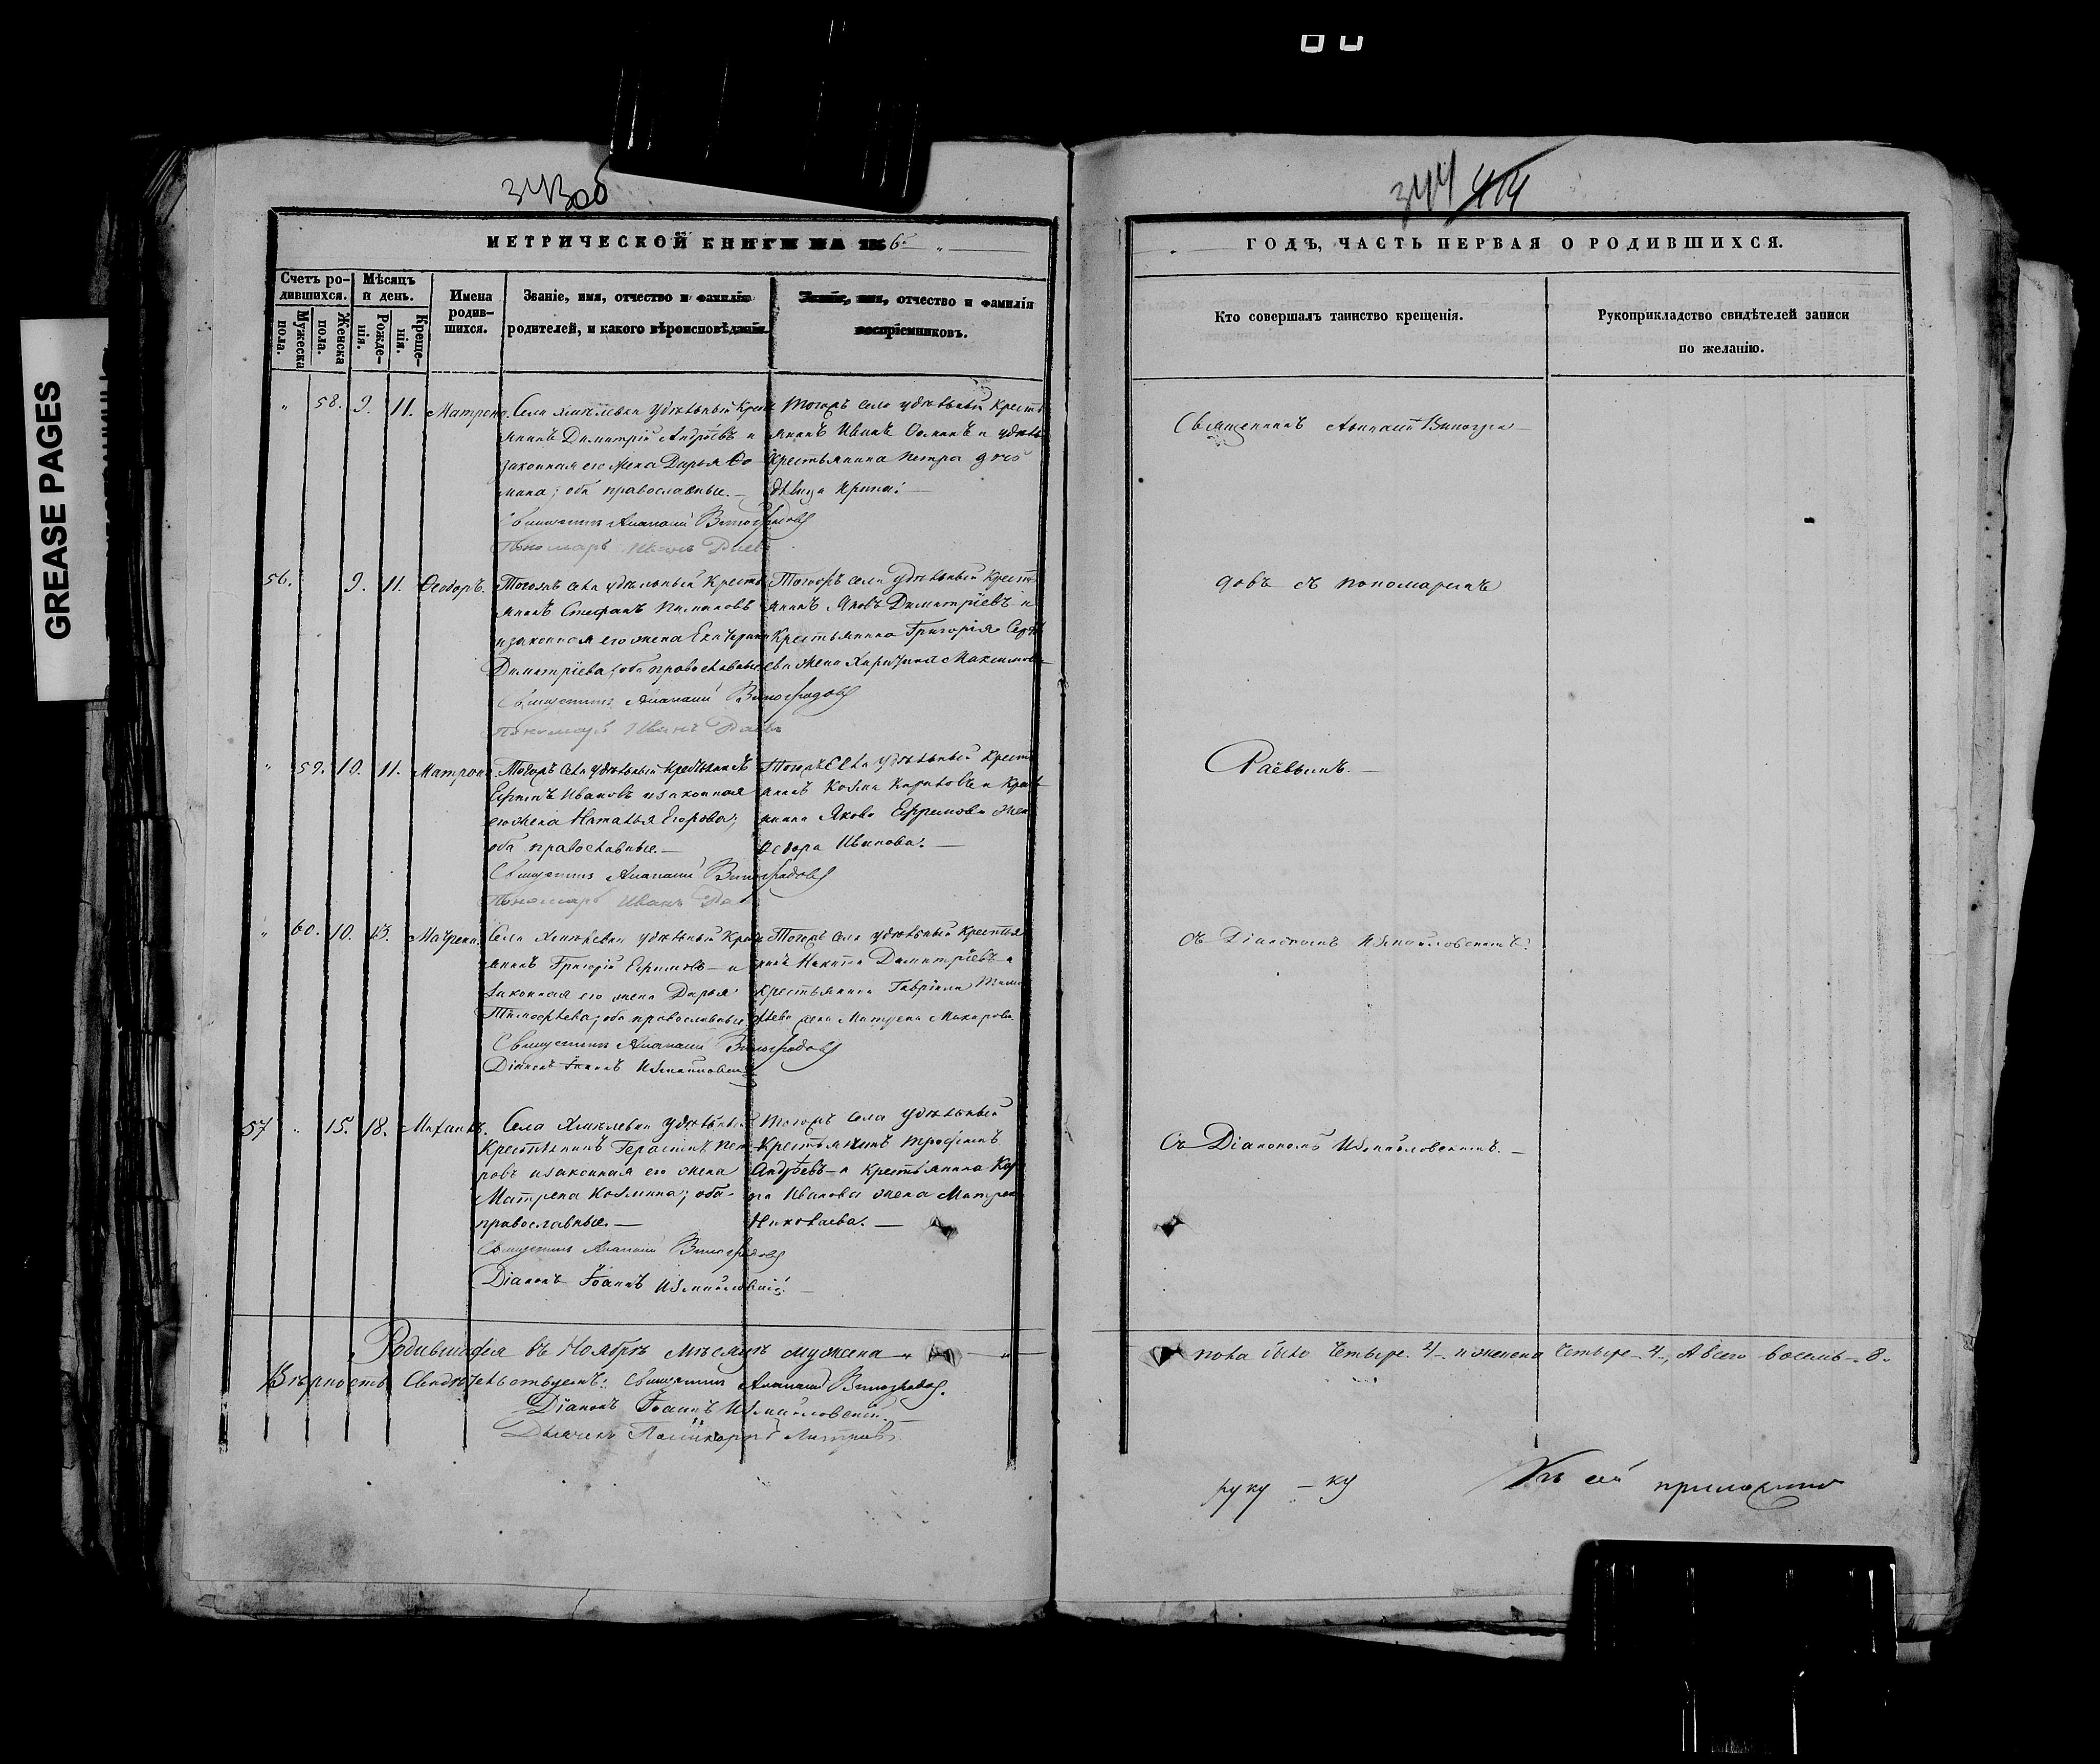 GREASE PAGES
343
344 414
МЕТРИЧЕСКОЙ КНИГИ НА 186
ГОДЪ, ЧАСТЬ ПЕРВАЯ О РОДИВШИХСЯ.
Счетъ родившихся.
Мужеска пола.
Женска пола.
Мѣсяцъ и день.
Рожденія.
Крещенія.
Имена родившихся.
Званіе, имя, отчество и фамилія
родителей, и какого вѣроисповѣданія.
Званіе, имя, отчество и фамилія
воспріемниковъ.
Кто совершалъ таинство крещенія.
Рукоприкладство свидѣтелей записи
по желанію.
„ 58. 9. 11. Матрона.
Села удѣльный Крестьянинъ
Димитрій Андреевъ и
законная его жена Дарья Ѳо-
мина; оба православные.—
Священникъ Ананій Виноградовъ
Пономарь Иванъ Раевъ
Тогожъ села удѣльный Кресть
янинъ Иванъ и удѣль
Крестьянина Петра
дѣвица Ирина.—
Священникъ Ананій Виногра—
56. 9. 11. Ѳеодоръ.
Тогожъ села удѣльный Кресть
янинъ Стефанъ
и законная его жена Екатерина
Димитріева; оба православные
Священникъ Ананій Виноградовъ
Пономарь Иванъ Раевъ
Тогожъ села удѣльный Кресть
янинъ Яковъ Димитріевъ и
Крестьянина Григорія
жена Максимова
довъ съ пономаремъ
„ 59. 10. 11. Матрона
Тогожъ села удѣльный Крестьянинъ
Ефимъ Ивановъ и законная
его жена Наталья Егорова;
оба православные.—
Священникъ Ананій Виноградовъ
Пономарь Иванъ
Тогожъ села удѣльный Кресть
янинъ Козма и Кресть
янина Якова Ефремова жена
Ѳедора Иванова.—
Раевымъ.—
„ 60. 10. 13. Матрена
Села удѣльный
янинъ Григорій Ефимовъ— и
законная его жена Дарья
Тимоѳеева; оба православные.
Священникъ Ананій Виноградовъ
Діаконъ Іоаннъ Измайловскій
Тогожъ села удѣльный Крестья
нинъ Никита Димитріевъ и
Крестьянина Гавріила Тимо
ѳеева жена Матрена Макарова.
съ Діакономъ Измайловскимъ.
57 „ 15. 18. Михаилъ.
Села удѣльный
Крестьянинъ Герасимъ Пет-
ровъ и законная его жена
Матрена Козмина; оба
православные.—
Священникъ Ананій Виноградовъ
Діаконъ Іоаннъ Измайловскій.
Тогожъ села удѣльный
Крестьянинъ Трофимъ
Андреевъ— и Крестьянина Кар
па Иванова жена Матрена
Николаева.—
Съ Діакономъ Измайловскимъ.—
Родившихся въ Ноябрѣ мѣсяцѣ мужеска
пола было четыре. 4. и женска четыре— 4., А всего восемь— 8.
Вѣрность свидѣтельствуемъ: Священникъ Ананій Виноградовъ.
Діаконъ Іоаннъ Измайловскій.—
Дьячекъ
руку
Къ сей